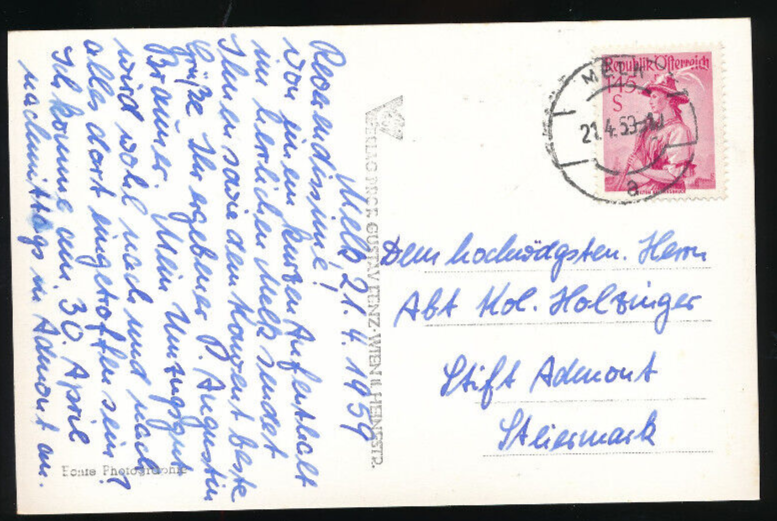 Melk 21.4.1959
Reverendissime!
Von einem kurzen Aufenthalt
im herrlichen Melk sendet
Ihnen sowie dem Konvent beste
Grüße Ihr ergebener P. Augustin
Brauner. Mein Umzugsgut
wird wohl nach und nach
alles dort eingetroffen sein?
Ich komme am 30. April
nachmittags in Admont an.
Echte Photographie
VERLAG PROF. GUSTAV FENZ·WIEN II, HEINESTR.
Republik Österreich
1·45
S
MELK
21.4.59
a
Dem hochwdgsten. Herrn
Abt Kol. Holzinger
Stift Admont
Steiermark